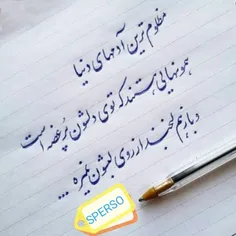 مظلوم ترین آدمهای دنیا
همونهایی هستند که توی دلشون پُر غصه است
و بازم لبخند از روی لبشون نمیره ...
SPERSO